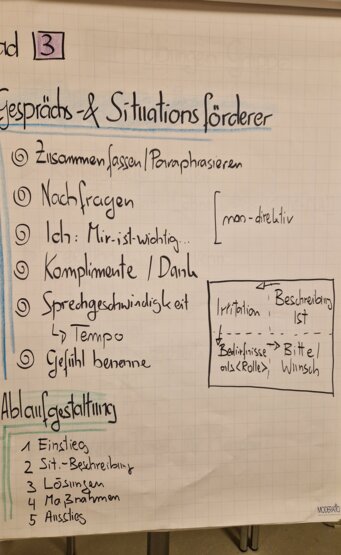 ad 3
Gesprächs- & Situationsförderer
Zusammenfassen/Paraphrasieren
Nachfragen
non-direktiv
Ich: Mir-ist-wichtig...
Komplimente / Dank
Sprechgeschwindigkeit
↳ Tempo
Gefühl benenne
Irritation
Beschreibung
Ist
Bedürfnisse
als <Rolle>
→ Bitte/
Wunsch
Ablaufgestaltung
1 Einstieg
2 Sit.-Beschreibung
3 Lösungen
4 Maßnahmen
5 Ausstieg